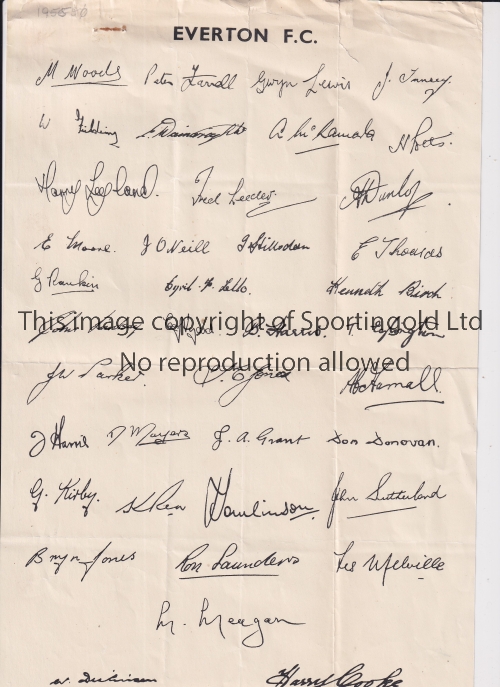 EVERTON F.C.
M Woods Peter Farrell Gwyn Lewis J. Tansey
W Fielding E. Wainwright A McNamara H Potts.
Harry Leyland. Fred Leeder. A Dunlop
E Moore. J O'Neill J Hillsdon E Thomas
G Rankin Cyril F. Lello. Kenneth Birch
This image copyright of Sportingold Ltd
No reproduction allowed
J W Parker. T. E Jones
J Harris D Mayers J. A. Grant Don Donovan.
G. Kirby. K Rea Tomlinson. John Sutherland
Bryn Jones Ron Saunders Les Melville
M. Meagan
W. Dickinson Harry Cooke